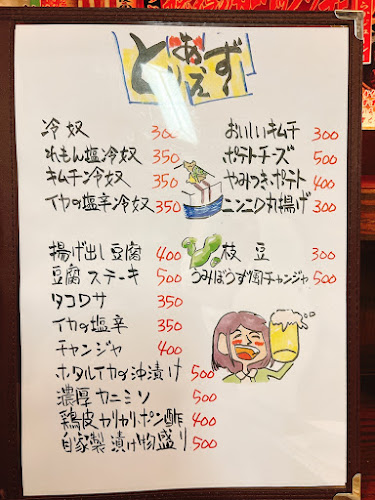 とりあえず
冷奴 300
れもん塩冷奴 350
キムチン冷奴 350
イカの塩辛冷奴 350
おいしいキムチ 300
ポテトチーズ 500
やみつきポテト 400
ニンニク丸揚げ 300
揚げ出し豆腐 400
豆腐ステーキ 500
タコワサ 350
イカの塩辛 350
チャンジャ 400
ホタルイカの沖漬け 500
濃厚カニミソ 500
鶏皮カリカリポン酢 400
自家製漬け物盛り 500
枝豆 300
うみぼうず風チャンジャ 500